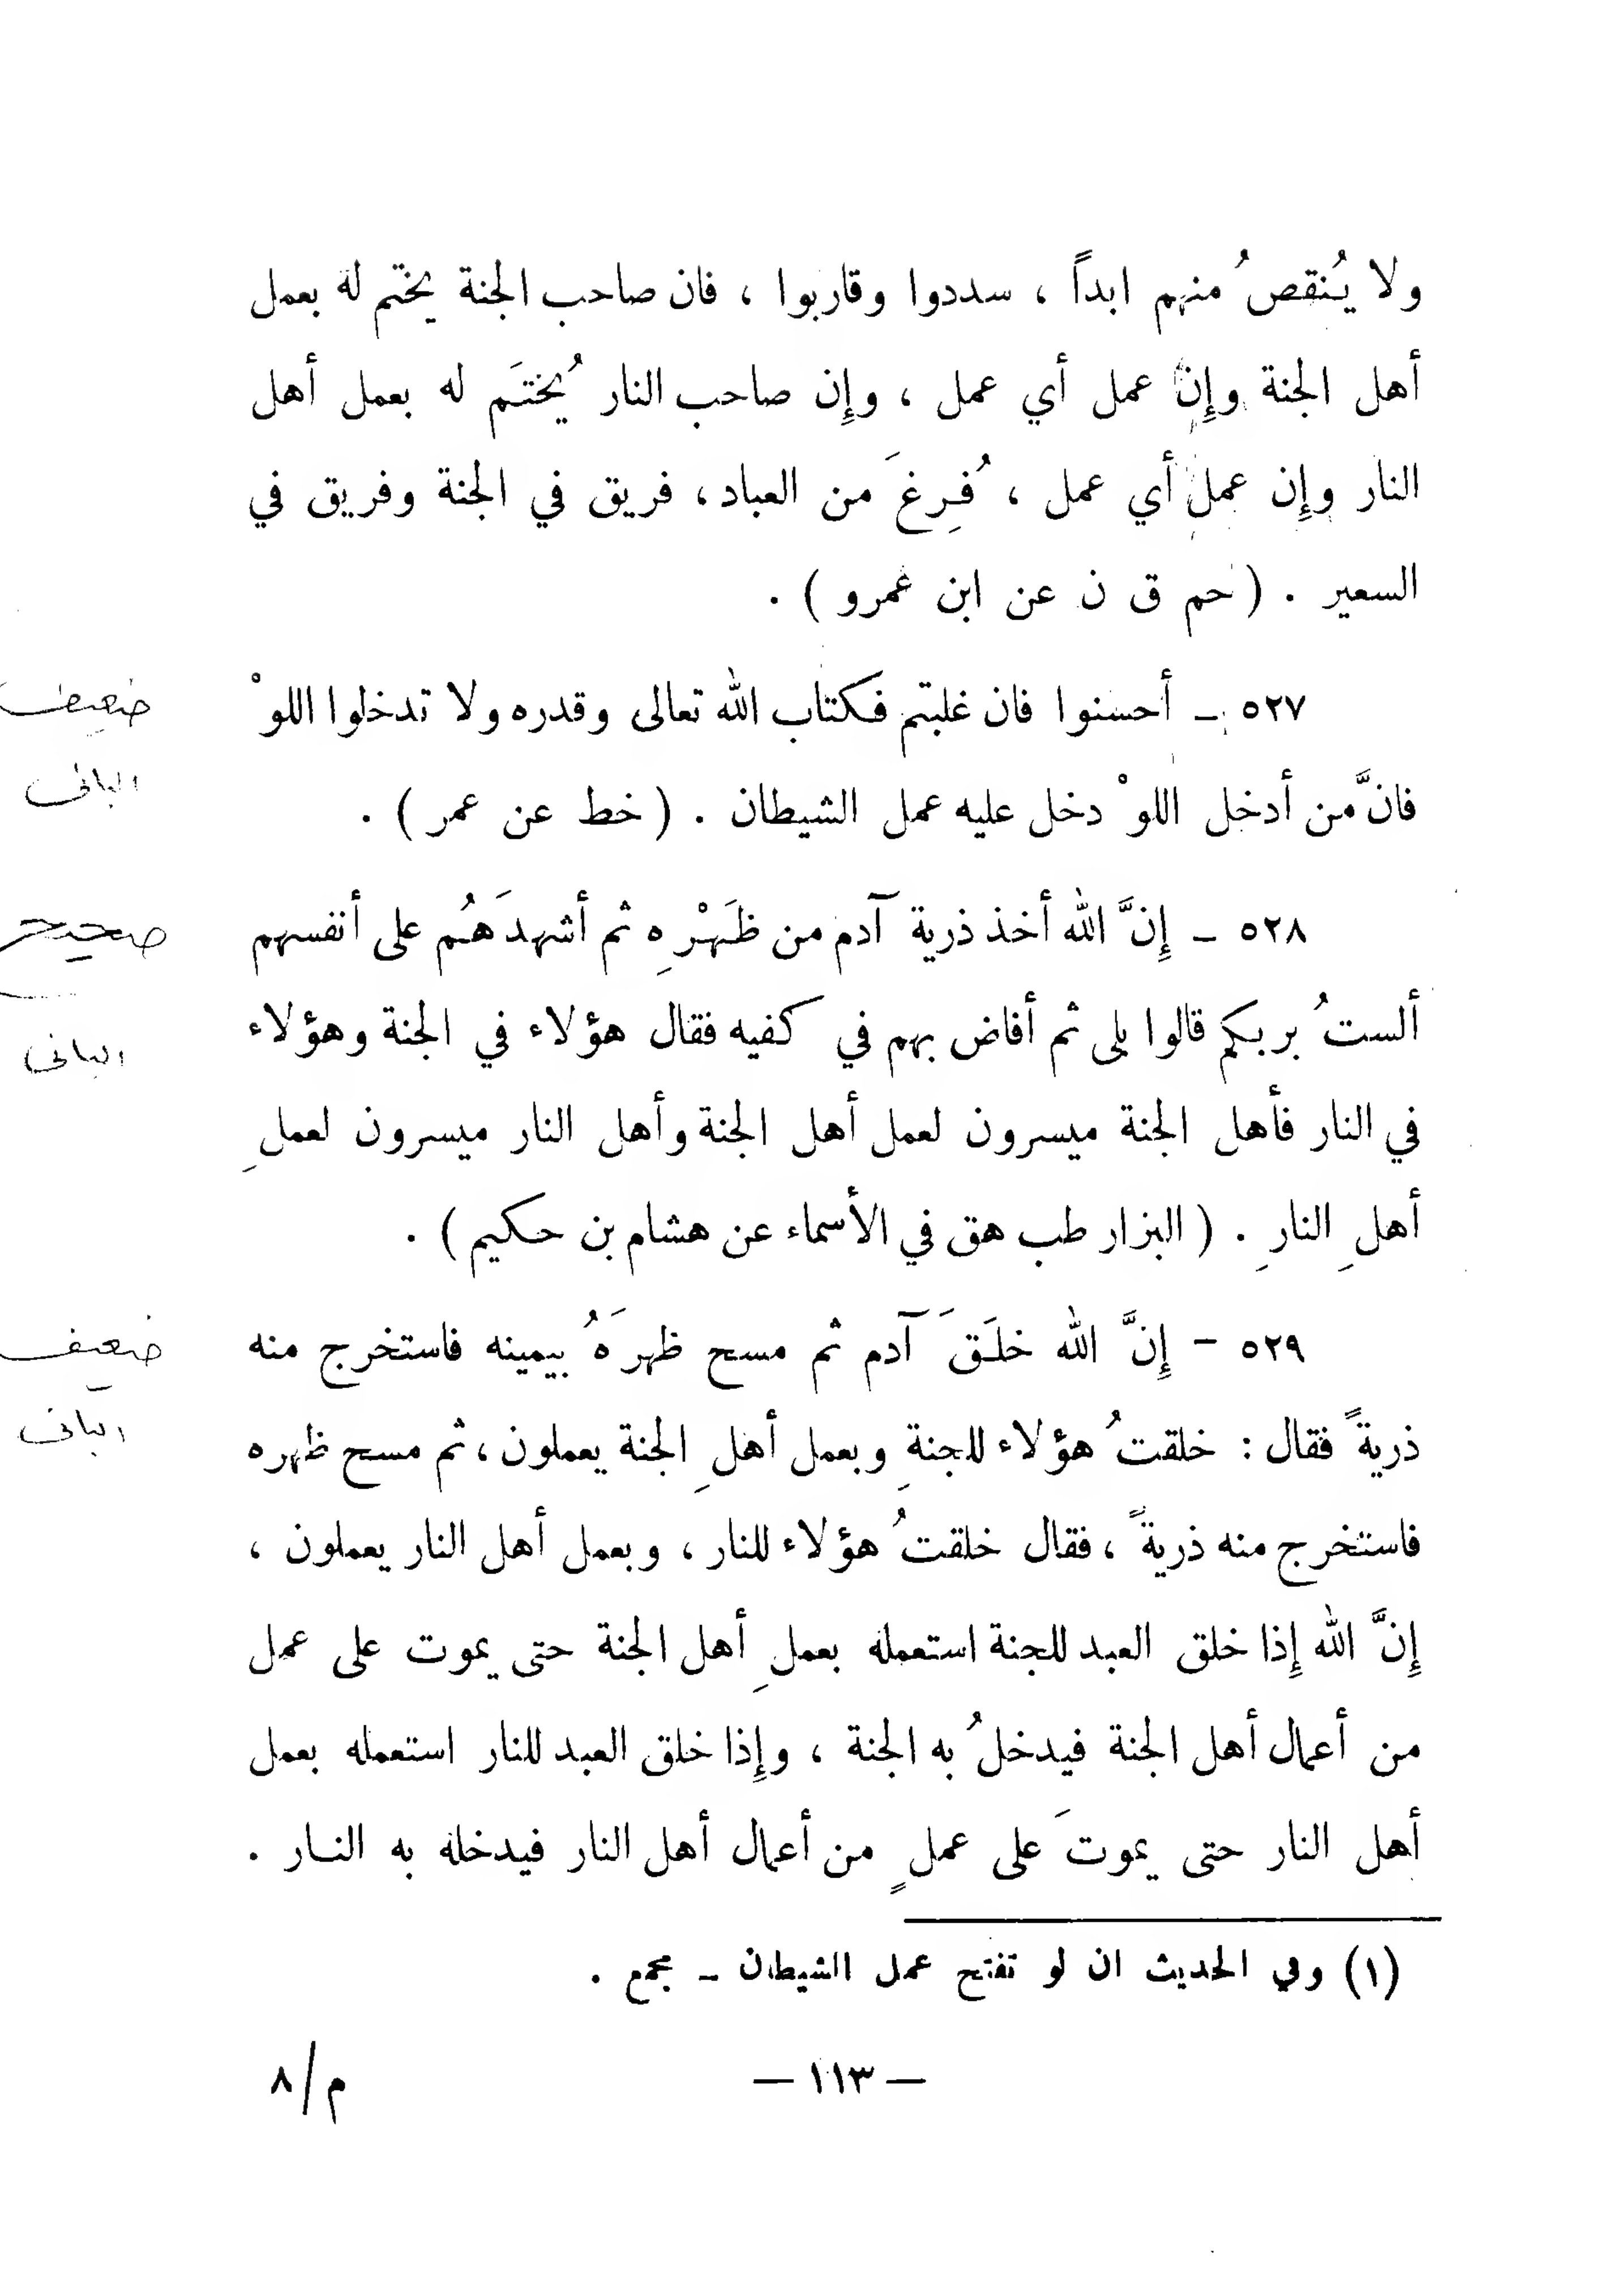 ولا يُنقصُ منهم ابداً ، سددوا وقاربوا ، فان صاحب الجنة يختم له بعمل
أهل الجنة وإن عمل أي عمل ، وإن صاحب النار يُختَم له بعمل أهل
النار وإن عمل أي عمل ، فُرِغَ من العباد ، فريق في الجنة وفريق في
السعير . ( حم ق ن عن ابن عمرو ) .
٥٢٧ - أحسنوا فان غلبتم فكتاب الله تعالى وقدره ولا تدخلوا اللوْ
ضعيف
فانَّ من أدخل اللوْ دخل عليه عمل الشيطان . ( خط عن عمر ) .
البانى
٥٢٨ - إِنَّ الله أخذ ذرية آدم من ظَهْرِه ثم أشهدَهُم على أنفسهم
صحيح
ألستُ بربكم قالوا بلى ثم أفاض بهم في كفيه فقال هؤلاء في الجنة وهؤلاء
البانى
في النار فأهل الجنة ميسرون لعمل أهل الجنة وأهل النار ميسرون لعملِ
أهلِ النارِ . ( البزار طب هق في الأسماء عن هشام بن حكيم ) .
٥٢٩ - إِنَّ الله خلَقَ آدم ثم مسح ظهرَهُ بيمينه فاستخرج منه
ضعيف
ذريةً فقال : خلقتُ هؤلاء للجنةِ وبعمل أهلِ الجنة يعملون ، ثم مسح ظهره
البانى
فاستخرج منه ذريةً ، فقال خلقتُ هؤلاء للنار ، وبعمل أهل النار يعملون ،
إِنَّ الله إِذا خلق العبد للجنة استعمله بعملِ أهل الجنة حتى يموت على عمل
من أعمال أهل الجنة فيدخلُ به الجنة ، وإِذا خلق العبد للنار استعمله بعمل
أهل النار حتى يموتَ على عملٍ من أعمال أهل النار فيدخله به النـار .
(١) وفي الحديث ان لو تفتح عمل الشيطان - مجمع .
- ١١٣ -
م/٨